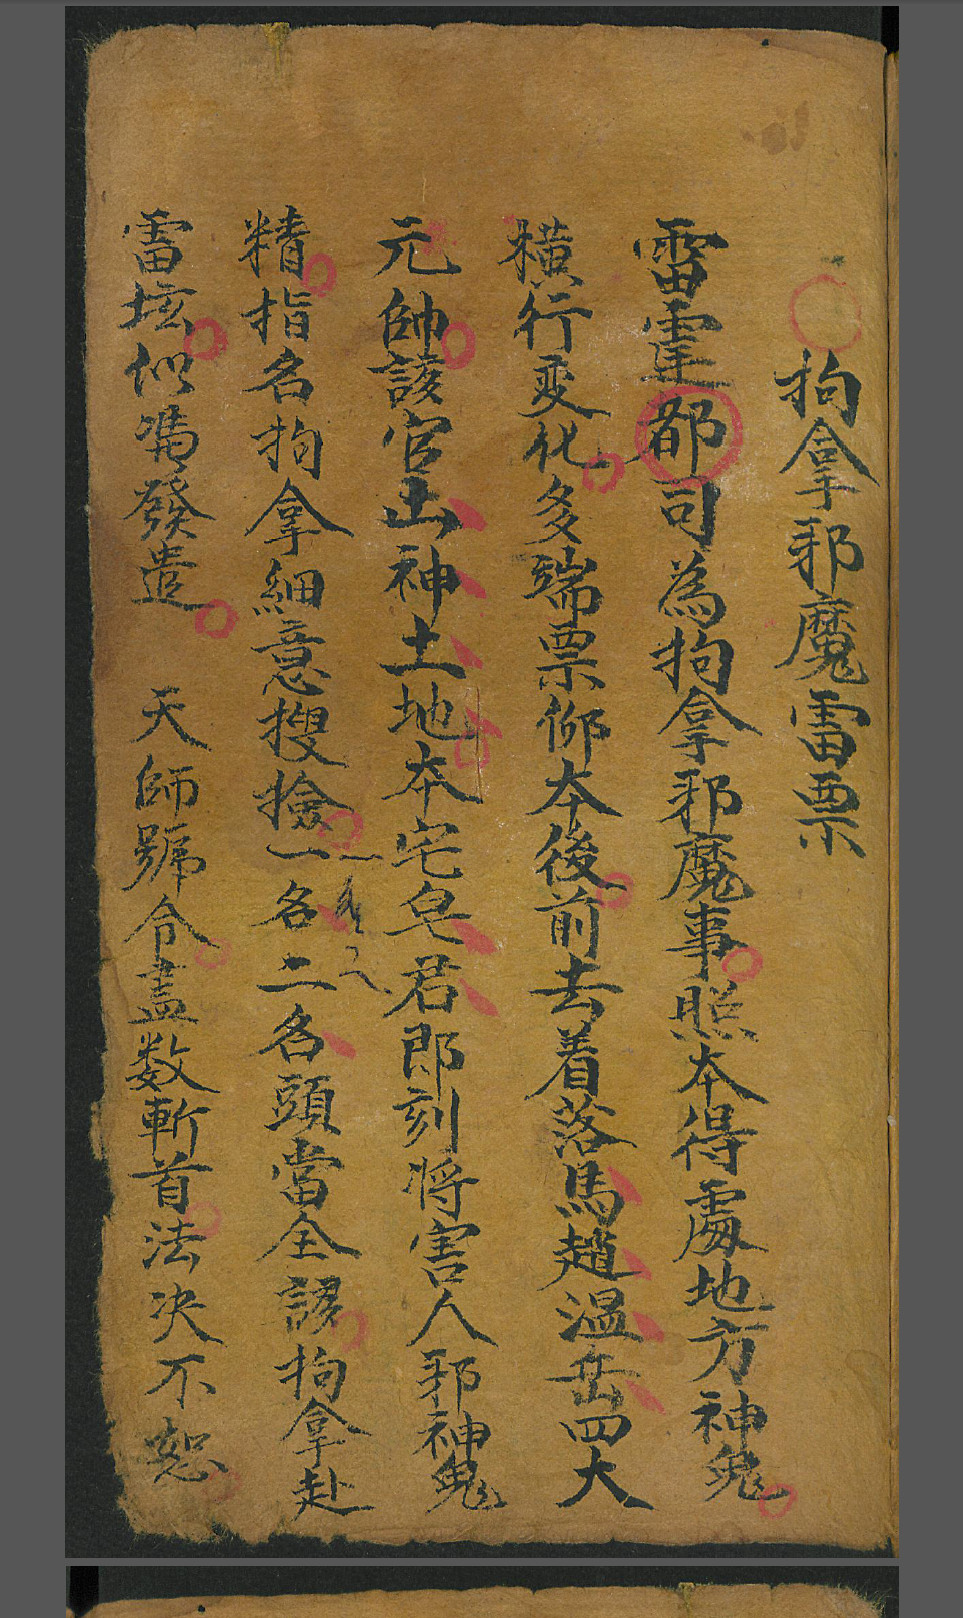 拘拿邪魔雷票
雷霆都司為拘拿邪魔事照本得處地方神鬼
橫行変化多端票仰本後前去着落馬趙温岳四大
元帥該官山神土地本宅皂君即刻将害人邪神鬼
精指名拘拿細意搜撿一名二名頭當全拘拿赴
雷坛似憑發遣 天師號令盡数斬首法决不恕